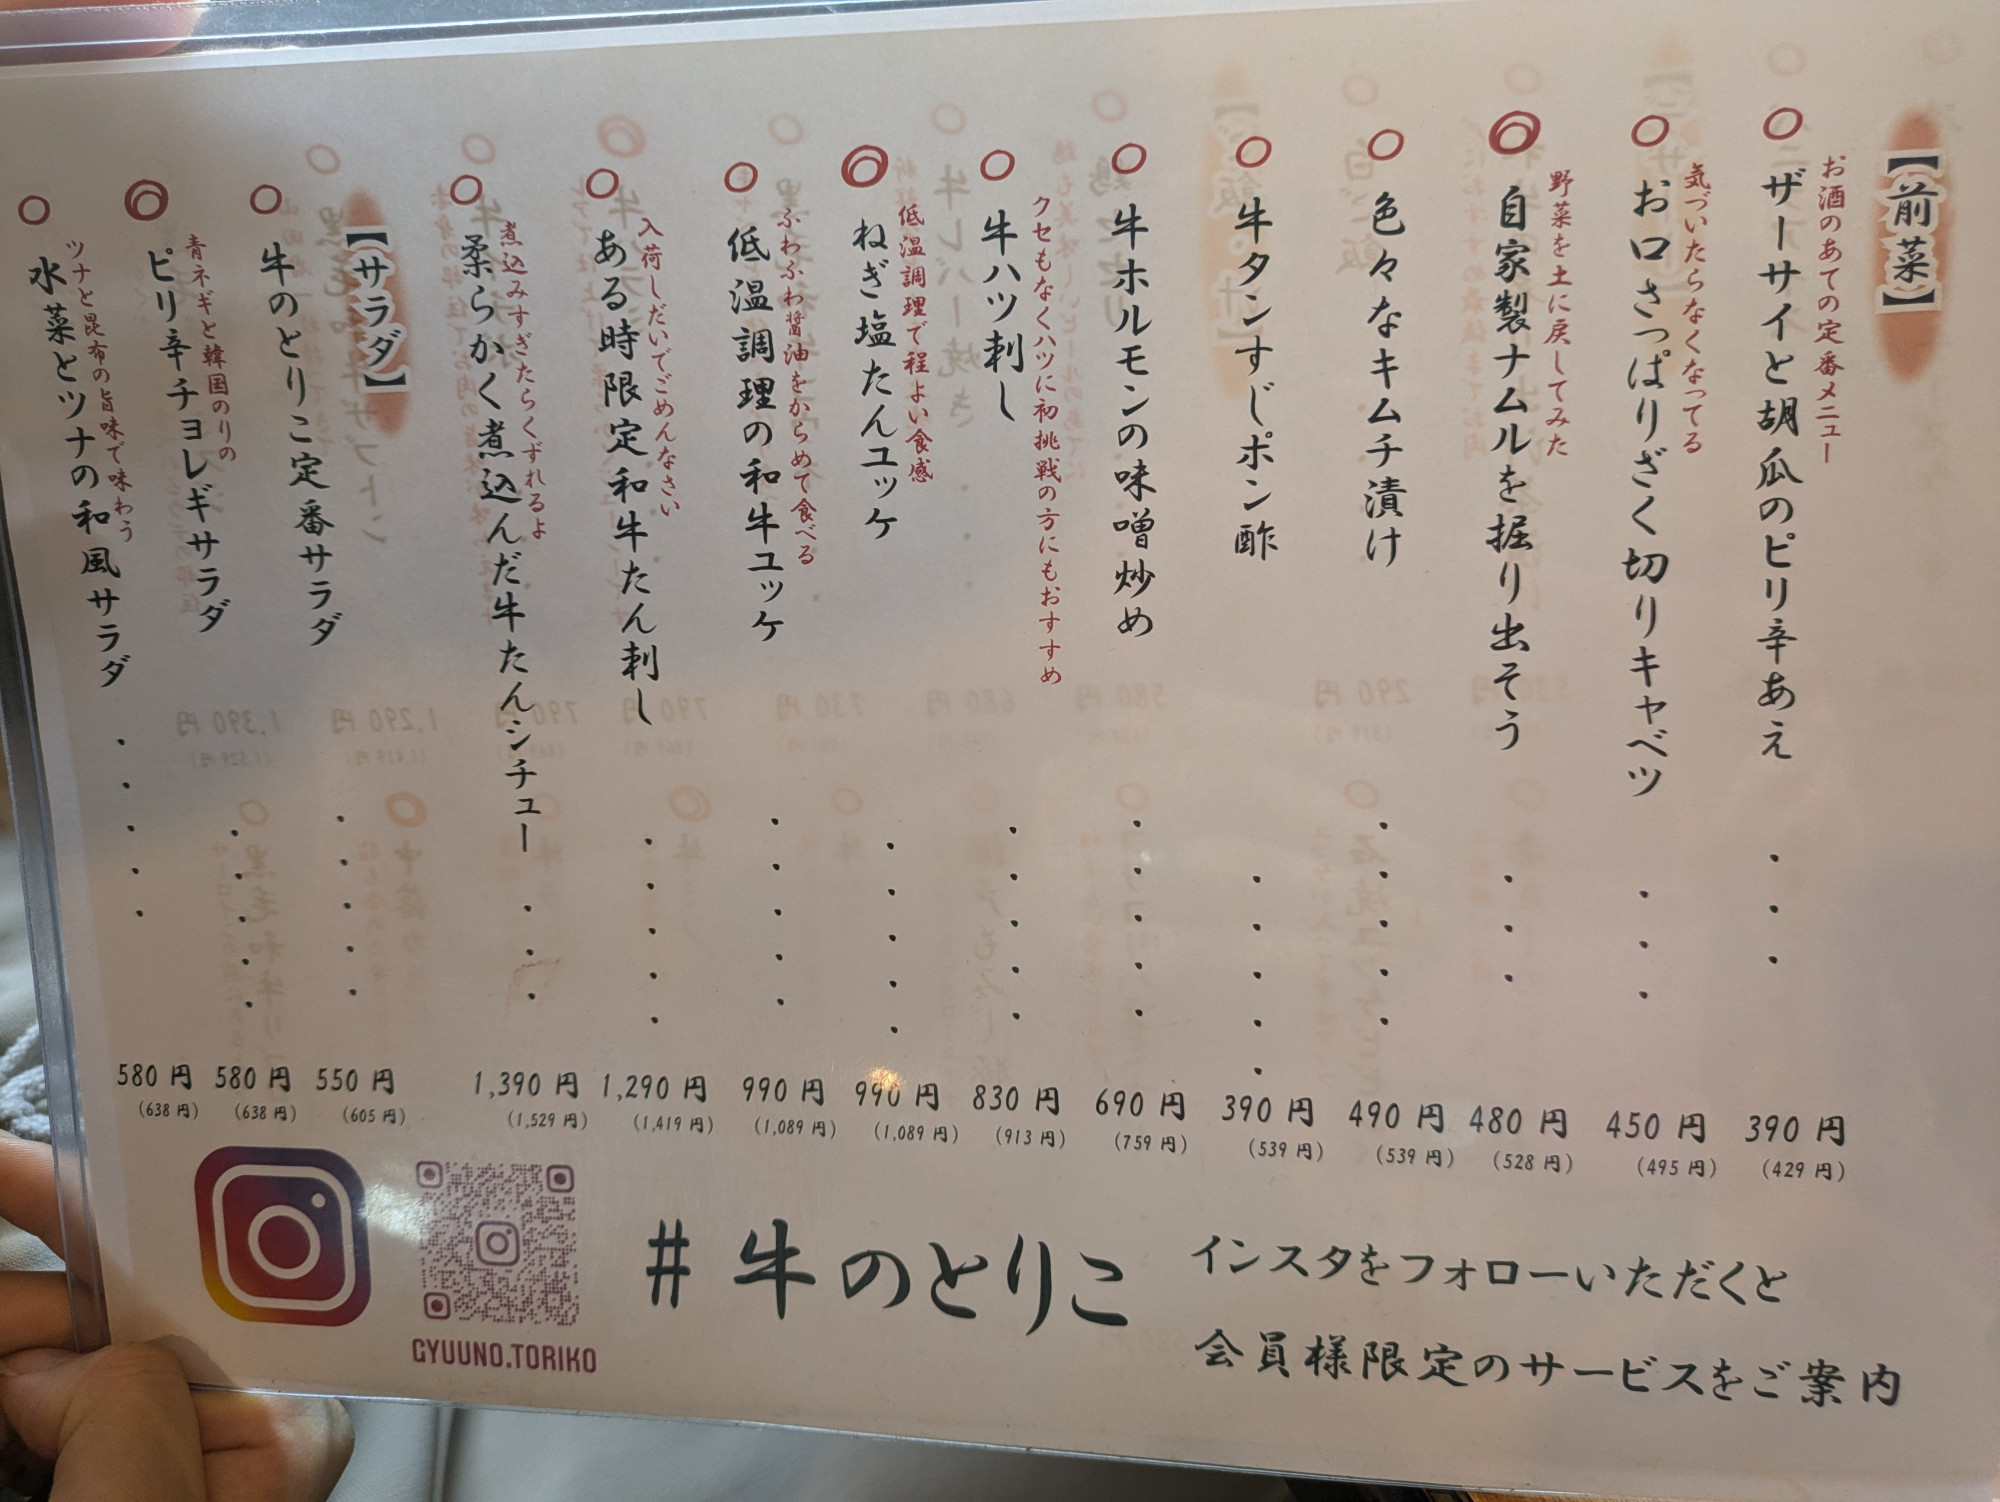 【前菜】
お酒のあての定番メニュー
ザーサイと胡瓜のピリ辛あえ・・・390円
(429円)
気づいたらなくなってる
お口さっぱりざく切りキャベツ・・・450円
(495円)
野菜を土に戻してみた
自家製ナムルを掘り出そう・・・480円
(528円)
色々なキムチ漬け・・・・・490円
(539円)
牛タンすじポン酢・・・・・390円
(539円)
牛ホルモンの味噌炒め・・・・・690円
(759円)
クセもなくハツに初挑戦の方にもおすすめ
牛ハツ刺し・・・・・830円
(913円)
低温調理で程よい食感
ねぎ塩たんユッケ・・・・・990円
(1,089円)
ふわふわ醤油をからめて食べる
低温調理の和牛ユッケ・・・・・990円
(1,089円)
入荷しだいでごめんなさい
ある時限定和牛たん刺し・・・・・1,290円
(1,419円)
煮込みすぎたらくずれるよ
柔らかく煮込んだ牛たんシチュー・・・1,390円
(1,529円)
【サラダ】
牛のとりこ定番サラダ・・・・・550円
(605円)
青ネギと韓国のりの
ピリ辛チョレギサラダ・・・・・580円
(638円)
ツナと昆布の旨味で味わう
水菜とツナの和風サラダ・・・・・580円
(638円)
GYUUNO.TORIKO
#牛のとりこ
インスタをフォローいただくと
会員様限定のサービスをご案内